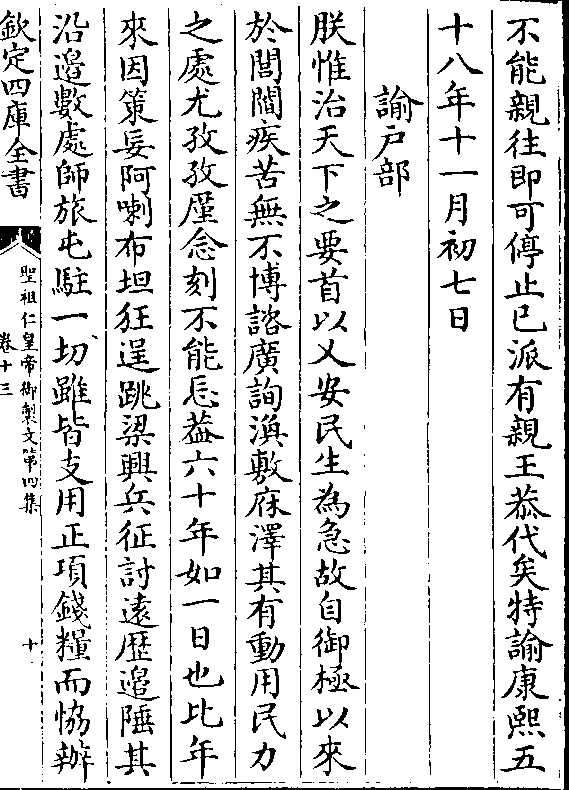 不能親往即可停止已派有親王恭代矣特諭康熙五
十八年十一月初七日
諭戶部
朕惟治天下之要首以乂安民生為急故自御極以來
於閭閻疾苦無不博諮廣詢渙敷庥澤其有動用民力
之處尤孜孜廑念刻不能忘葢六十年如一日也比年
來因策妄阿喇布坦狂逞跳梁興兵征討遠歷邊陲其
沿邊數處師旅屯駐一切雖皆支用正項錢糧而恊辦
欽定四庫全書
聖祖仁皇帝御製文第四集
卷十三
十